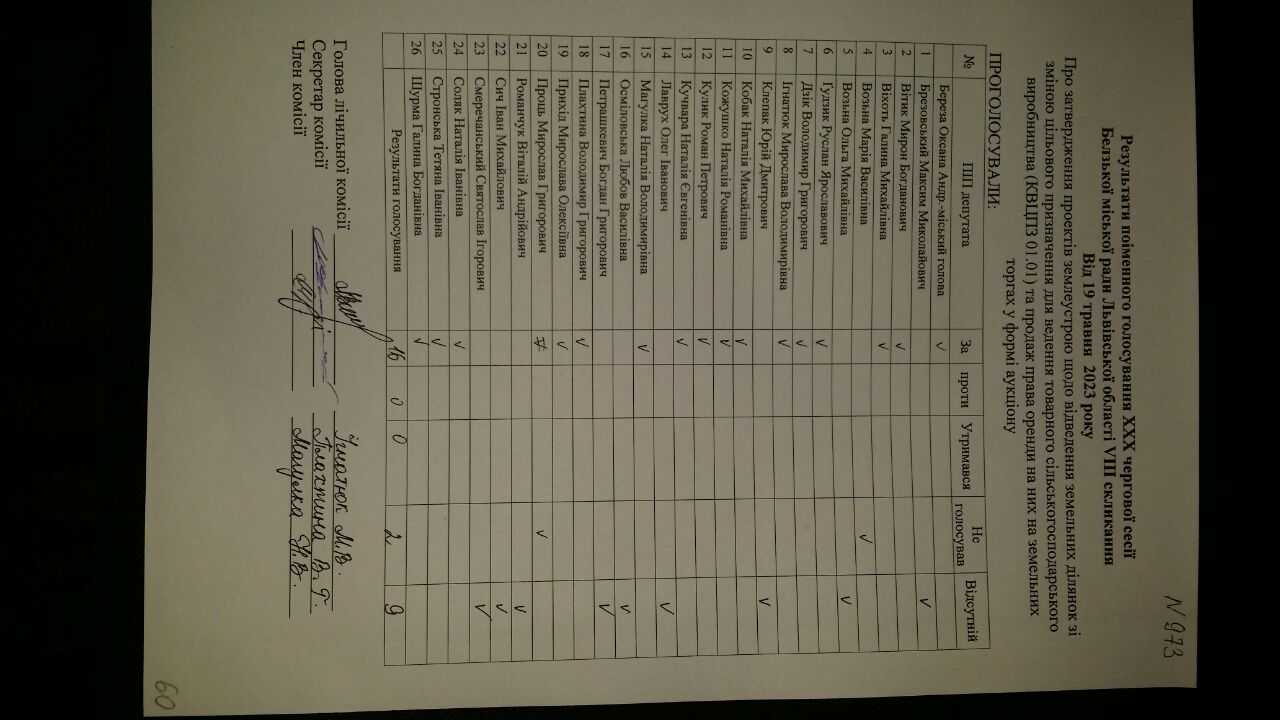 N 973
Результати поіменного голосування XXX чергової сесії
Белзької міської ради Львівської області VIII скликання
Від 19 травня 2023 року
Про затвердження проектів землеустрою щодо відведення земельних ділянок зі
зміною цільового призначення для ведення товарного сільськогосподарського
виробництва (КВЦПЗ 01.01) та продаж права оренди на них на земельних
торгах у формі аукціону
ПРОГОЛОСУВАЛИ:
№ ПІП депутата За проти Утримався Не голосував Відсутній
Береза Оксана Андр.-міський голова ✓
1 Брезовський Максим Миколайович ✓
2 Вітик Мирон Богданович ✓
3 Віхоть Галина Михайлівна ✓
4 Возьна Марія Василівна ✓
5 Возьна Ольга Михайлівна ✓
6 Гудзик Руслан Ярославович ✓
7 Дзік Володимир Григорович ✓
8 Ігнатюк Мирослава Володимирівна ✓
9 Клепак Юрій Дмитрович ✓
10 Кобак Наталія Михайлівна ✓
11 Кожушко Наталія Романівна ✓
12 Кулик Роман Петрович ✓
13 Кучвара Наталія Євгенівна ✓
14 Лаврух Олег Іванович ✓
15 Магулка Наталія Володимирівна ✓
16 Осміловська Любов Василівна ✓
17 Петрашкевич Богдан Григорович ✓
18 Плахтина Володимир Григорович ✓
19 Прихід Мирослава Олексіївна ✓
20 Проць Мирослав Григорович ✓ ✓
21 Романчук Віталій Андрійович ✓
22 Сич Іван Михайлович ✓
23 Смеречанський Святослав Ігорович ✓
24 Соляк Наталія Іванівна ✓
25 Стронська Тетяна Іванівна ✓
26 Щурма Галина Богданівна ✓
Результати голосування 16 0 0 2 9
Голова лічильної комісії Ігнатюк М.В.
Секретар комісії Плахтина В.Г.
Член комісії Магулка Н.В.
60